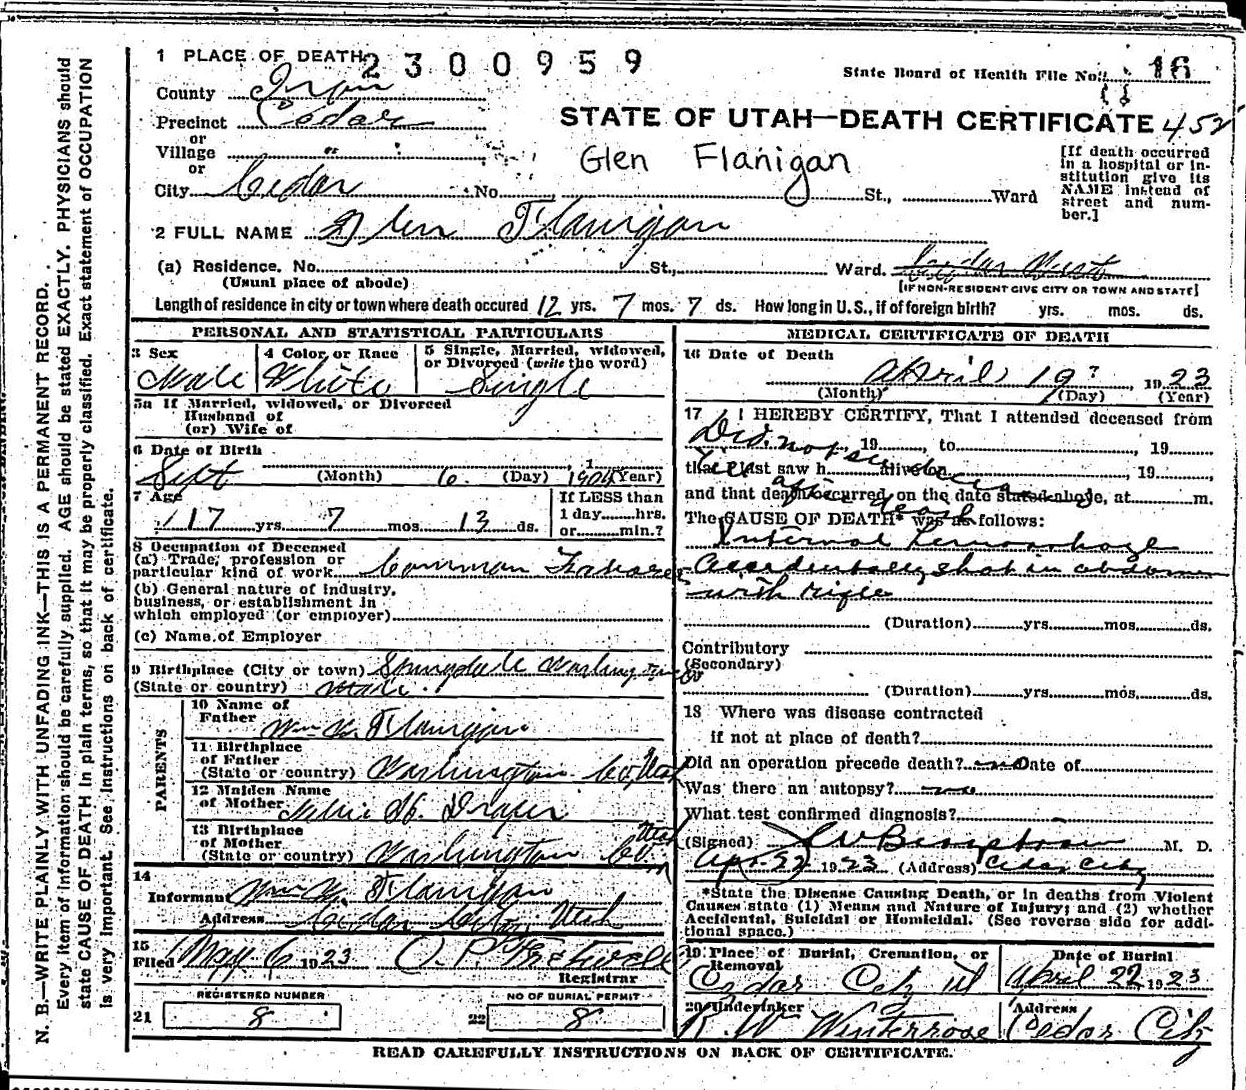 N. B.—WRITE PLAINLY WITH UNFADING INK—THIS IS A PERMANENT RECORD.
Every item of information should be carefully supplied. AGE should be stated EXACTLY. PHYSICIANS should
state CAUSE OF DEATH in plain terms, so that it may be properly classified. Exact statement of OCCUPATION
is very important. See instructions on back of certificate.
1 PLACE OF DEATH
2300959
State Board of Health File No. 16
County Iron
Precinct Cedar
or
Village "
or
City Cedar No. St., Ward
STATE OF UTAH—DEATH CERTIFICATE 452
Glen Flanigan
[If death occurred
in a hospital or in-
stitution give its
NAME instead of
street and num-
ber.]
2 FULL NAME Glen Flanigan
(a) Residence. No. St., Ward. Cedar West
(Usual place of abode) [IF NON-RESIDENT GIVE CITY OR TOWN AND STATE]
Length of residence in city or town where death occured 12 yrs. 7 mos. 7 ds. How long in U.S., if of foreign birth? yrs. mos. ds.
PERSONAL AND STATISTICAL PARTICULARS
3 Sex
Male
4 Color or Race
White
5 Single, Married, widowed,
or Divorced (write the word)
Single
5a If Married, widowed, or Divorced
Husband of
(or) Wife of
6 Date of Birth
Sept (Month) 6 (Day), 1905 (Year)
7 Age
17 yrs. 7 mos. 13 ds.
If LESS than
1 day hrs.
or min.?
8 Occupation of Deceased
(a) Trade, profession or
particular kind of work Common Laborer
(b) General nature of industry,
business, or establishment in
which employed (or employer)
(c) Name of Employer
9 Birthplace (City or town) Springdale Washington Co
(State or country) Utah.
PARENTS
10 Name of
Father Wm. H. Flanigan
11 Birthplace
of Father
(State or country) Washington Co, Utah
12 Maiden Name
of Mother Nellie H. Draper
13 Birthplace
of Mother
(State or country) Washington Co. Utah
14
Informant Wm. H. Flanigan
Address Cedar City, Utah
15
Filed May 6 1923
Registrar
REGISTERED NUMBER
21 8
NO OF BURIAL PERMIT
22 8
MEDICAL CERTIFICATE OF DEATH
16 Date of Death
April 19, 1923
(Month) (Day) (Year)
17 I HEREBY CERTIFY, That I attended deceased from
Did not see deceased till after death
, 19 , to , 19 ,
that I last saw h alive on , 19 ,
and that death occurred, on the date stated above, at m.
The CAUSE OF DEATH* was as follows:
Internal Hemorrhage
Accidentally shot in abdomen
with rifle
(Duration) yrs. mos. ds.
Contributory
(Secondary)
(Duration) yrs. mos. ds.
18 Where was disease contracted
if not at place of death?
Did an operation precede death? no Date of
Was there an autopsy? no
What test confirmed diagnosis?
(Signed) M. D.
Apr. 22, 1923 (Address) Cedar City
*State the Disease Causing Death, or in deaths from Violent
Causes state (1) Means and Nature of Injury; and (2) whether
Accidental, Suicidal or Homicidal. (See reverse side for addi-
tional space.)
19 Place of Burial, Cremation, or
Removal
Cedar City Ut
Date of Burial
April 22 1923
20 Undertaker
R. W. Winterrose
Address
Cedar City
READ CAREFULLY INSTRUCTIONS ON BACK OF CERTIFICATE.